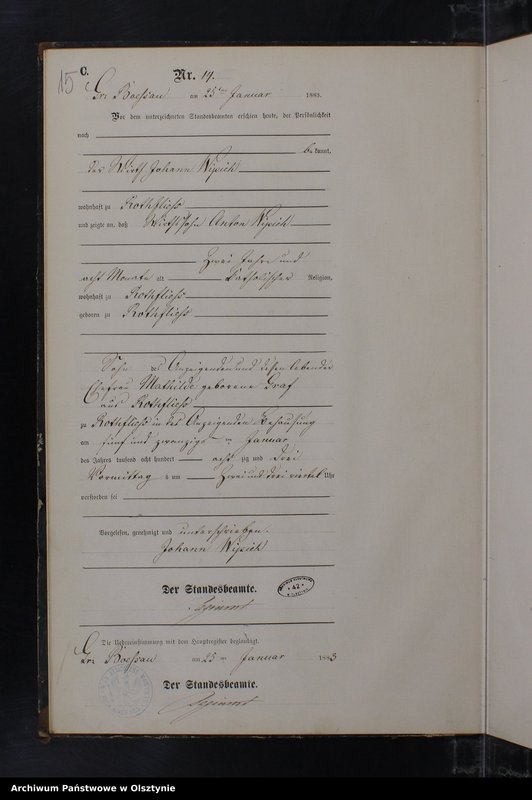 15
C.
Nr. 14.
Gr. Boessau am 25ten Januar 1883.
Vor dem unterzeichneten Standesbeamten erschien heute, der Persönlichkeit
nach
be kannt,
der Wirth Johann
wohnhaft zu Rothfliess
und zeigte an, daß Wirthssohn Anton
zwei Jahre und
acht Monate alt katholischer Religion,
wohnhaft zu Rothfliess
geboren zu Rothfliess
Sohn des Anzeigenden und dessen lebender
Ehefrau Mathilde geborene Graf
aus Rothfliess
zu Rothfliess in des Anzeigenden Behausung
am fünf und zwanzigsten Januar
des Jahres tausend acht hundert acht zig und drei
Vormittags um zwei und drei viertel Uhr
verstorben sei
Vorgelesen, genehmigt und unterschrieben.
Johann
Der Standesbeamte.
42
Die Uebereinstimmung mit dem Hauptregister beglaubigt.
Gr. Boessau am 25ten Januar 1883
Der Standesbeamte.
Archiwum Państwowe w Olsztynie